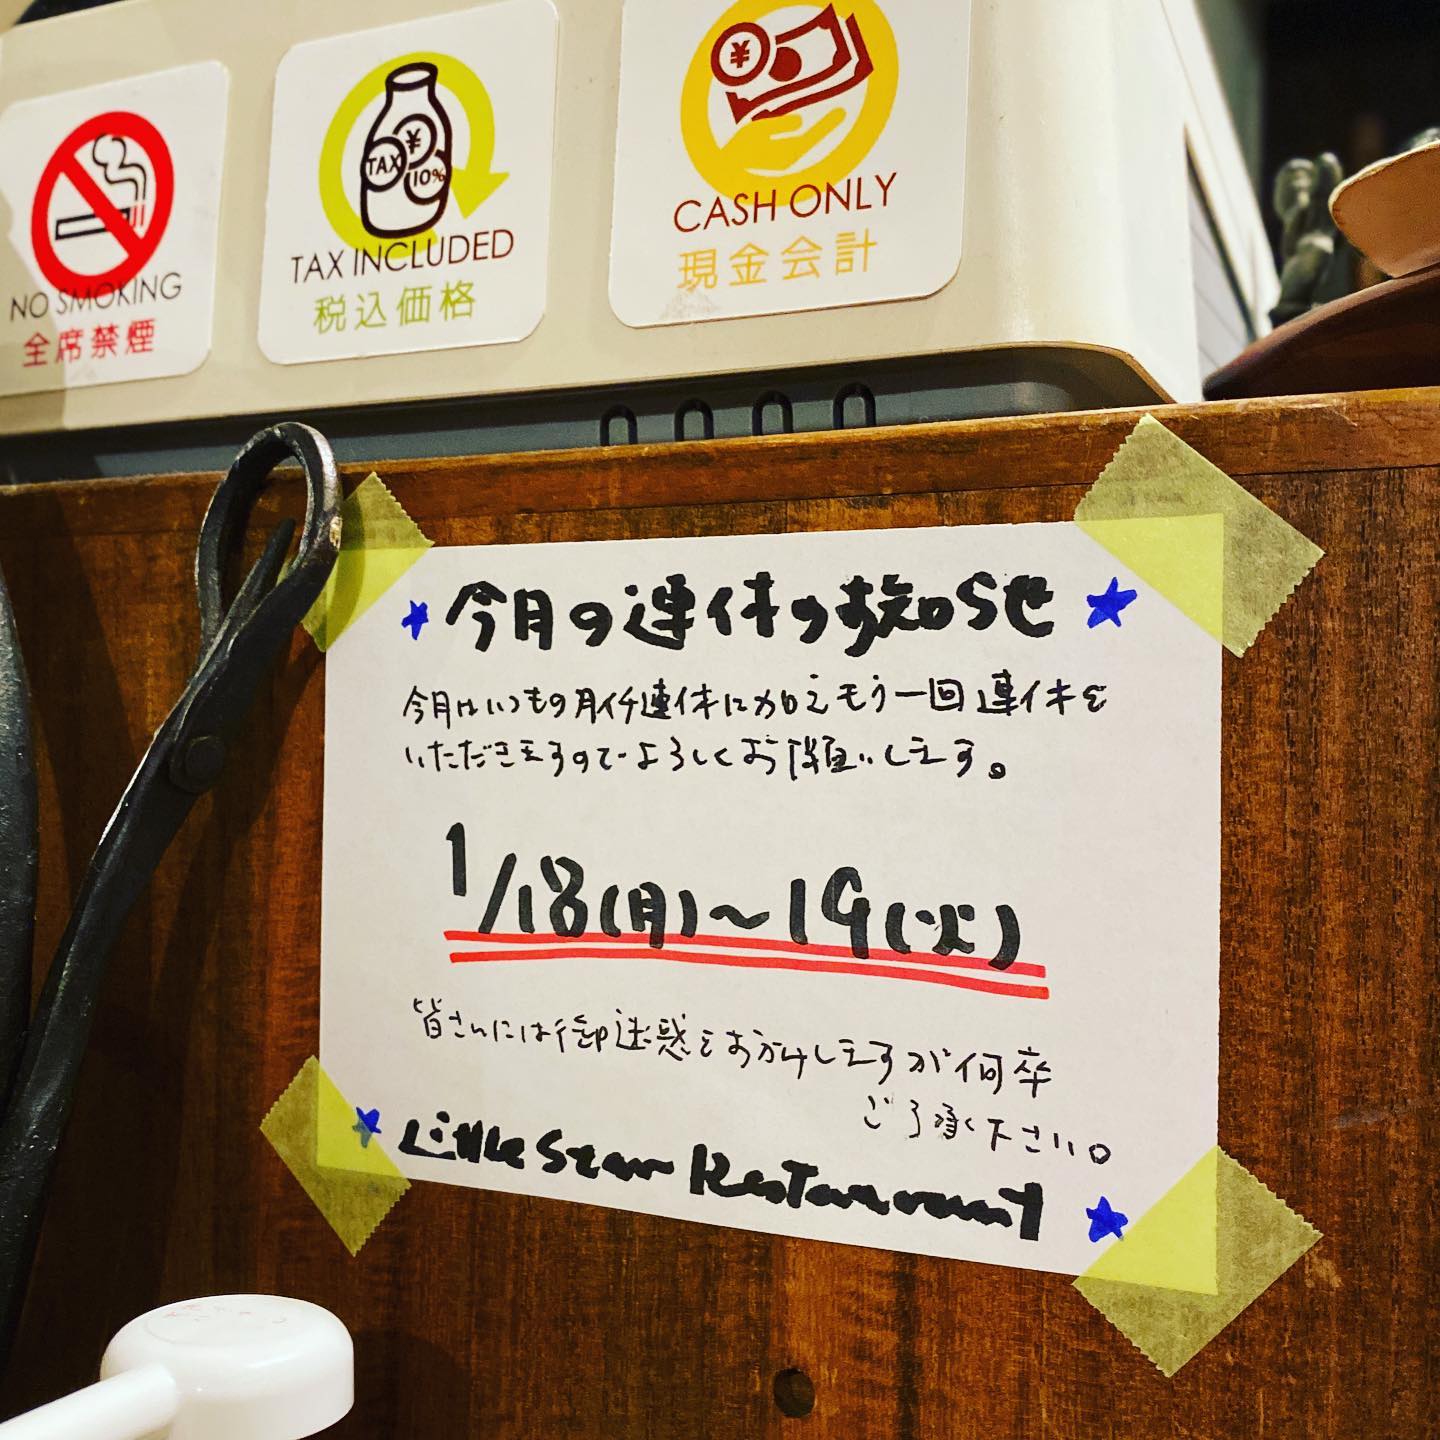 NO SMOKING
全席禁煙
¥
TAX
10%
TAX INCLUDED
税込価格
¥
CASH ONLY
現金会計
今月の連休のお知らせ
今月はいつもの月イチ連休に加えもう一回連休を
いただきますのでよろしくお願いします。
1/18(月)~19(火)
皆さんには御迷惑をおかけしますが何卒
ご了承下さい。
Little Star Restaurant